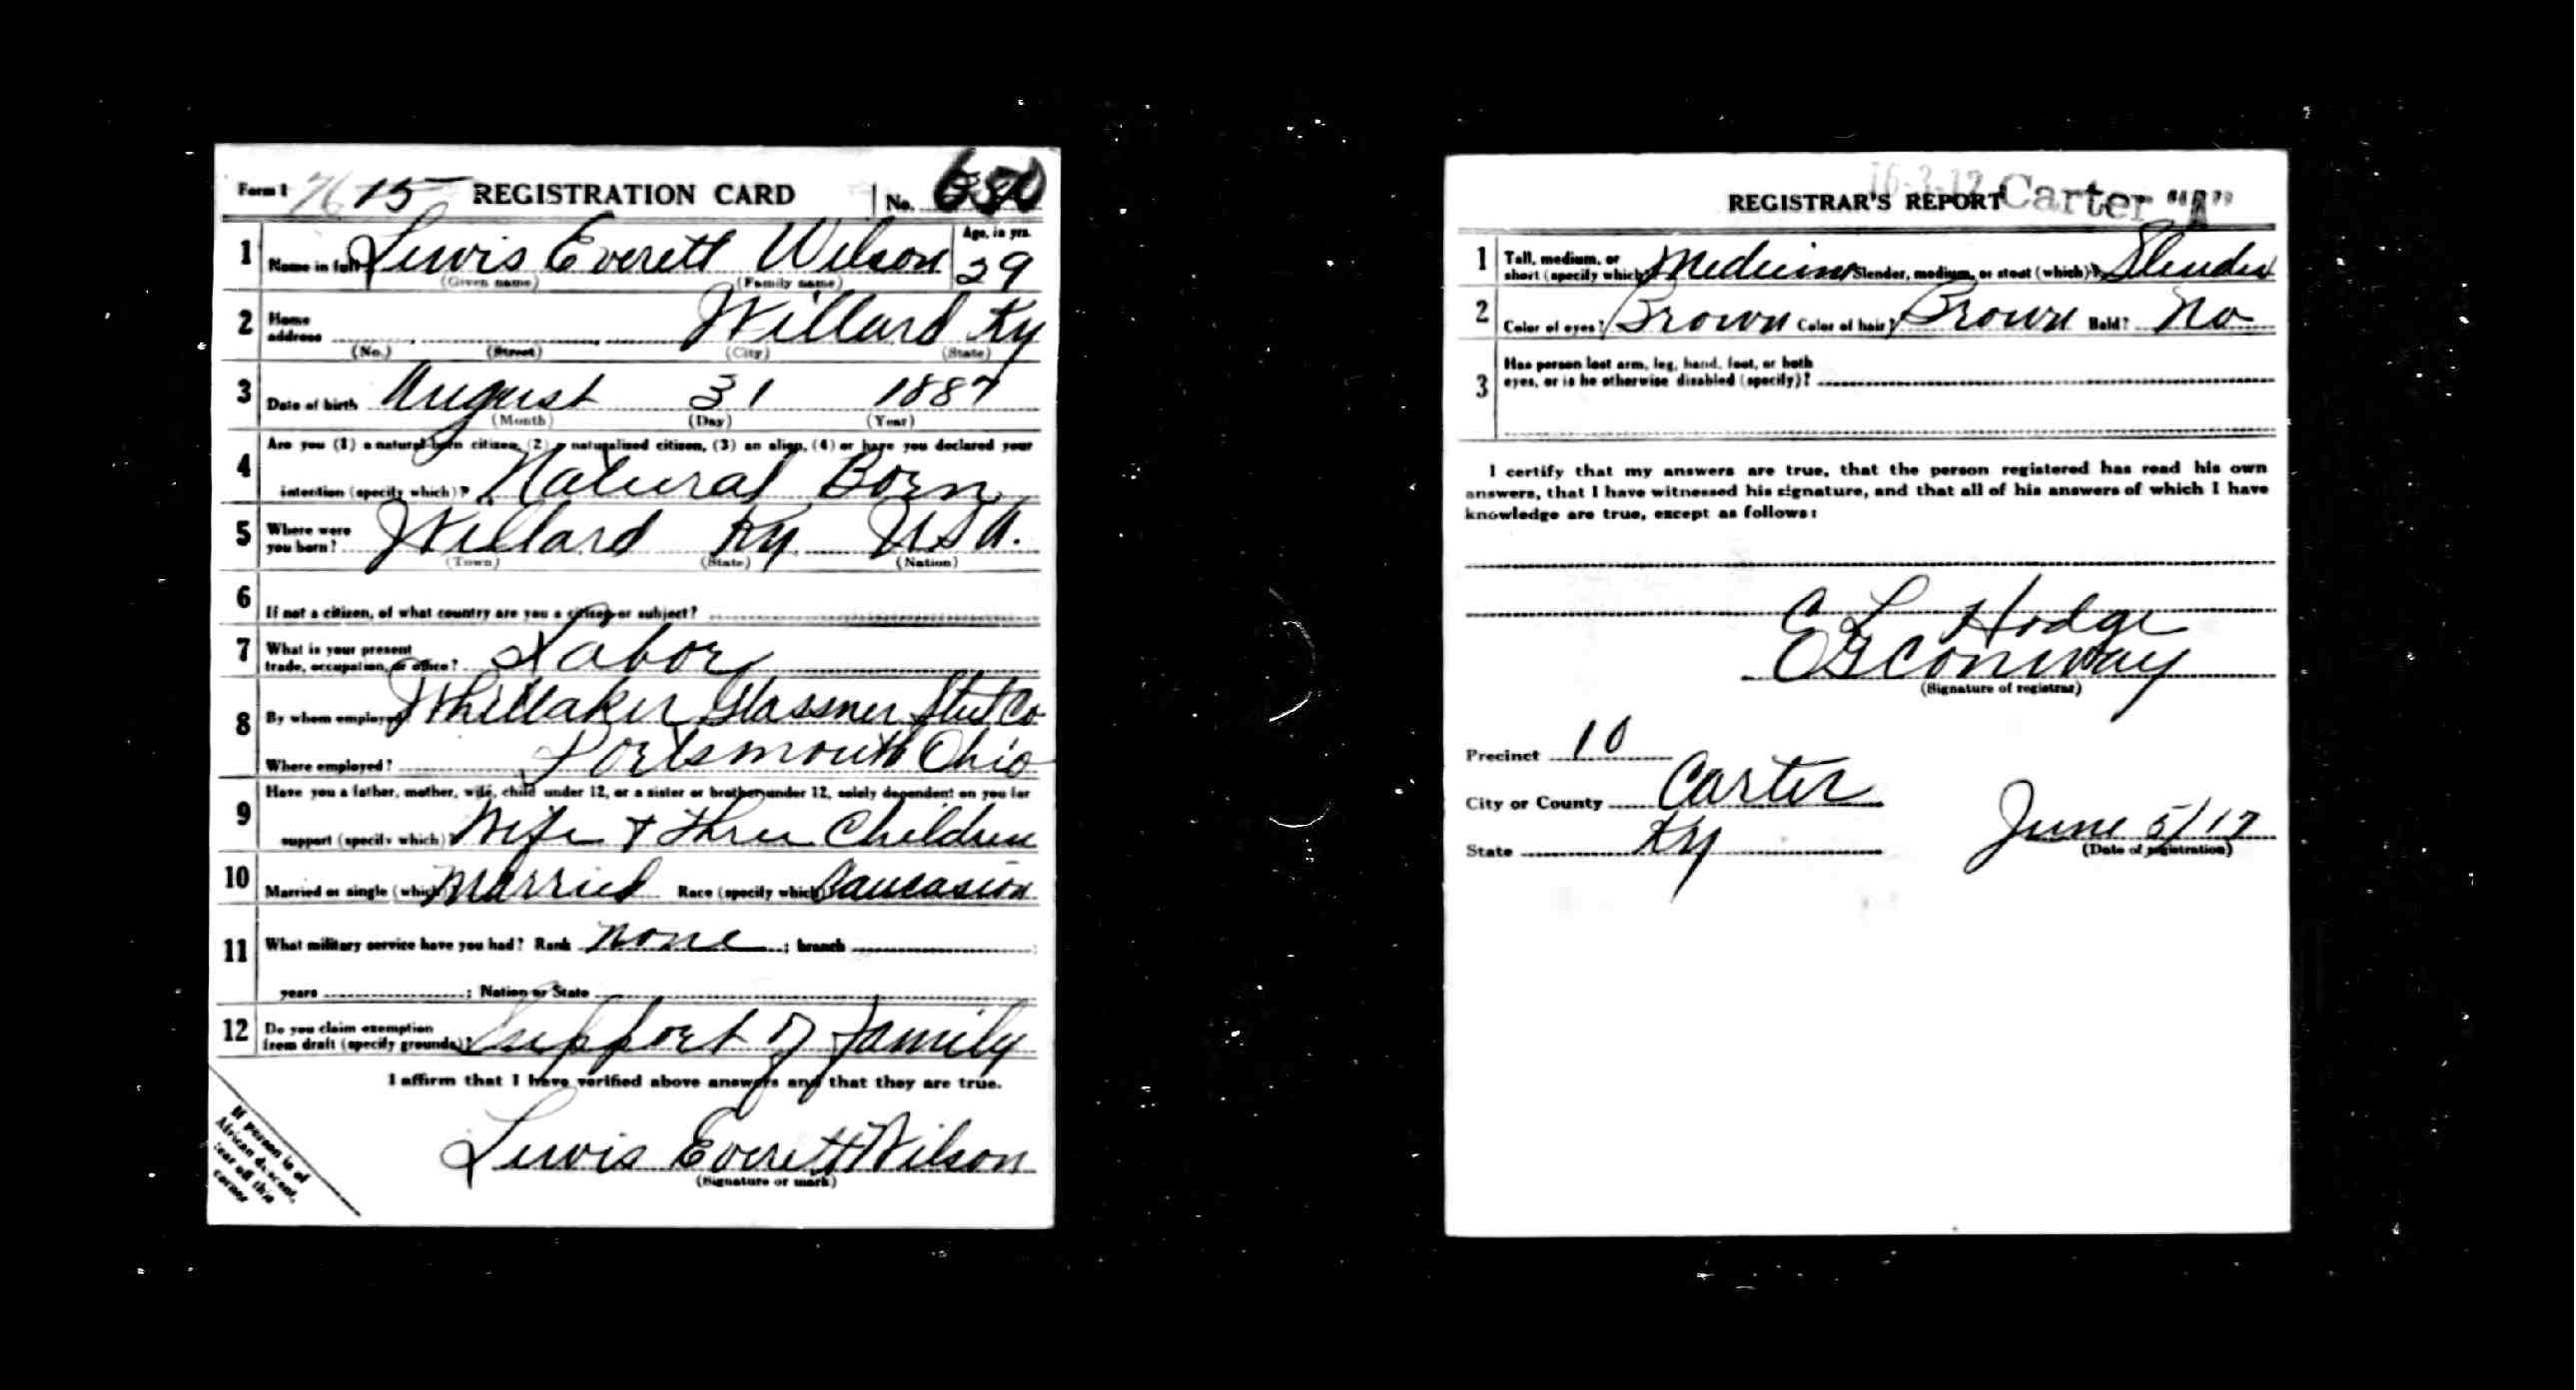 Form 1 15 REGISTRATION CARD No.
1 Name in full Lewis Everett Wilson Age, in yrs. 29
(Given name) (Family name)
2 Home address Willard Ky
(No.) (Street) (City) (State)
3 Date of birth August 31 1887
(Month) (Day) (Year)
4 Are you (1) a natural-born citizen, (2) a naturalized citizen, (3) an alien, (4) or have you declared your
intention (specify which)? Natural Born
5 Where were you born? Willard Ky. U.S.A.
(Town) (State) (Nation)
6 If not a citizen, of what country are you a citizen or subject?
7 What is your present trade, occupation, or office? Labor
8 By whom employed? Whittaker Glassner Steel Co
Where employed? Portsmouth Ohio
9 Have you a father, mother, wife, child under 12, or a sister or brother under 12, solely dependent on you for
support (specify which)? Wife + three Children
10 Married or single (which)? Married Race (specify which)? Caucasion
11 What military service have you had? Rank none ; branch ;
years ; Nation or State
12 Do you claim exemption from draft (specify grounds)? Support of family
I affirm that I have verified above answers and that they are true.
Lewis Everett Wilson
(Signature or mark)
If person is of
African descent,
tear off this
corner
REGISTRAR'S REPORT Carter "A"
1 Tall, medium, or short (specify which)? Medium Slender, medium, or stout (which)? Slender
2 Color of eyes? Brown Color of hair? Brown Bald? No
3 Has person lost arm, leg, hand, foot, or both
eyes, or is he otherwise disabled (specify)?
I certify that my answers are true, that the person registered has read his own
answers, that I have witnessed his signature, and that all of his answers of which I have
knowledge are true, except as follows:
E L Hodge
E G Conway
(Signature of registrar)
Precinct 10
City or County Carter
State Ky June 5/17
(Date of registration)